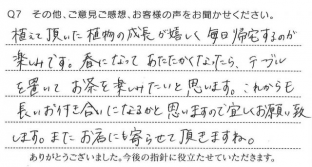 Q7 その他、ご意見ご感想、お客様の声をお聞かせください。
植えて頂いた植物の成長が嬉しく毎日帰宅するのが
楽しみです。春になってあたたかくなったら、テーブル
を置いてお茶を楽しみたいと思います。これからも
長いお付き合いになるかと思いますので宜しくお願い致
します。またお店にも寄らせて頂きますね。
ありがとうございました。今後の指針に役立たせていただきます。